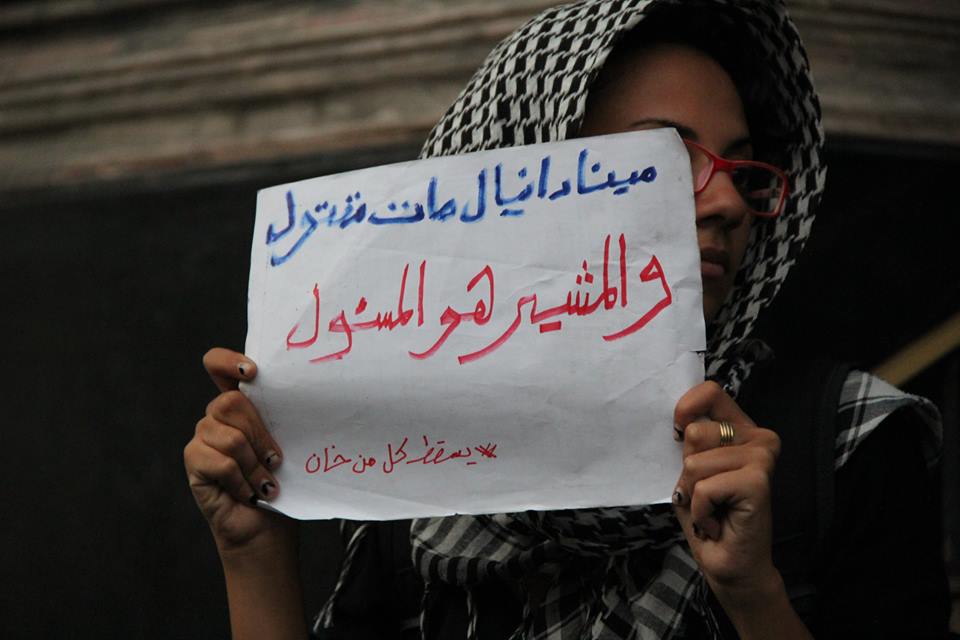 مينا دانيال مات مقتول
والمشير هو المسئول
* يسقط كل من خان